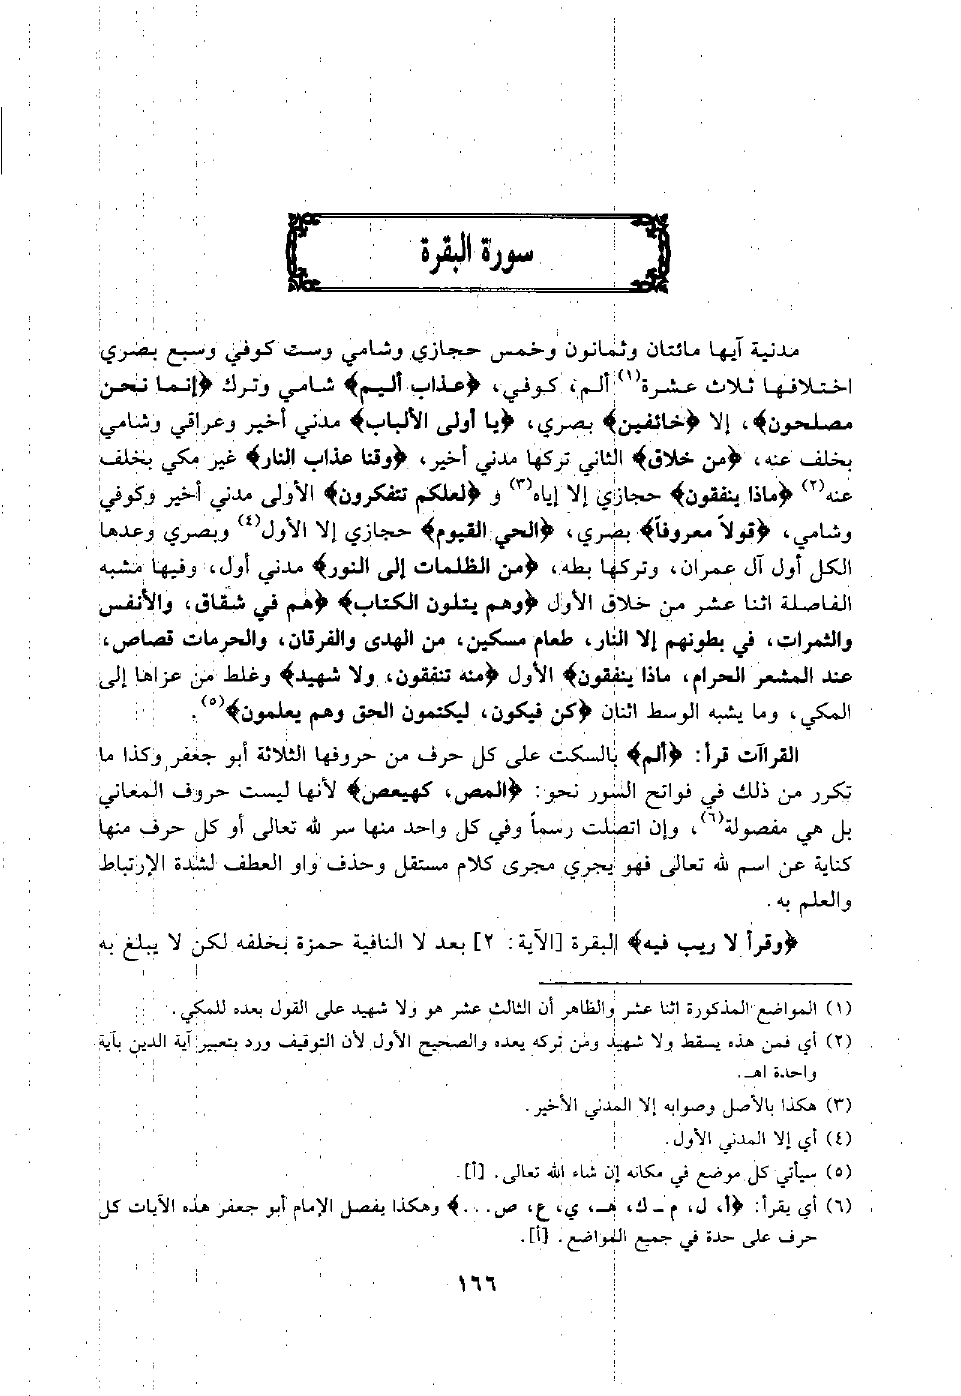 سورة البقرة
مدنية آيها مائتان وثمانون وخمس حجازي وشامي وست كوفي وسبع بصري
اختلافها ثلاث عشرة(١) ألم، كوفي، ﴿عذاب أليم﴾ شامي وترك ﴿إنما نحن
مصلحون﴾، إلا ﴿خائفين﴾ بصري، ﴿يا أولى الألباب﴾ مدني أخير وعراقي وشامي
بخلف عنه، ﴿من خلاق﴾ الثاني تركها مدني أخير، ﴿وقنا عذاب النار﴾ غير مكي بخلف
عنه(٢) ﴿ماذا ينفقون﴾ حجازي إلا إياه(٣) و ﴿لعلكم تتفكرون﴾ الأولى مدني أخير وكوفي
وشامي، ﴿قولاً معروفاً﴾ بصري، ﴿الحي القيوم﴾ حجازي إلا الأول(٤) وبصري وعدها
الكل أول آل عمران، وتركها بطه، ﴿من الظلمات إلى النور﴾ مدني أول، وفيها مشبه
الفاصلة اثنا عشر من خلاق الأول ﴿وهم يتلون الكتاب﴾ ﴿هم في شقاق، والأنفس
والثمرات، في بطونهم إلا النار، طعام مسكين، من الهدى والفرقان، والحرمات قصاص،
عند المشعر الحرام، ماذا ينفقون﴾ الأول ﴿منه تنفقون، ولا شهيد﴾ وغلط من عزاها إلى
المكي، وما يشبه الوسط اثنان ﴿كن فيكون، ليكتمون الحق وهم يعلمون﴾(٥).
القراآت قرأ: ﴿ألم﴾ بالسكت على كل حرف من حروفها الثلاثة أبو جعفر وكذا ما
تكرر من ذلك في فواتح السور نحو: ﴿المص، كهيعص﴾ لأنها ليست حروف المعاني
بل هي مفصولة(٦)، وإن اتصلت رسماً وفي كل واحد منها سر لله تعالى أو كل حرف منها
كناية عن اسم لله تعالى فهو يجري مجرى كلام مستقل وحذف واو العطف لشدة الإرتباط
والعلم به.
﴿وقرأ لا ريب فيه﴾ البقرة [الآية: ٢] بعد لا النافية حمزة بخلفه لكن لا يبلغ به
(١) المواضع المذكورة اثنا عشر والظاهر أن الثالث عشر هو ولا شهيد على القول بعده للمكي.
(٢) أي فمن هذه يسقط ولا شهيد ومن تركه يعده والصحيح الأول لأن التوقيف ورد بتعبير آية الدين بآية
واحدة اهـ.
(٣) هكذا بالأصل وصوابه إلا المدني الأخير.
(٤) أي إلا المدني الأول.
(٥) سيأتي كل موضع في مكانه إن شاء الله تعالى. [أ].
(٦) أي يقرأ: ﴿أ، ل، م ـ ك، هـ، ي، ع، ص...﴾ وهكذا يفصل الإمام أبو جعفر هذه الآيات كل
حرف على حدة في جميع المواضع. [أ].
١٦٦